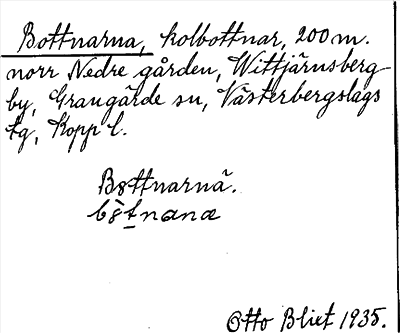 Bottnarna, kolbottnar, 200 m.
norr Nedre gården, Wittjärnsberg-
by, Grangärde sn, Västerbergslags
tg, Kopp l.
Båttnarnä.
Otto Blixt 1935.